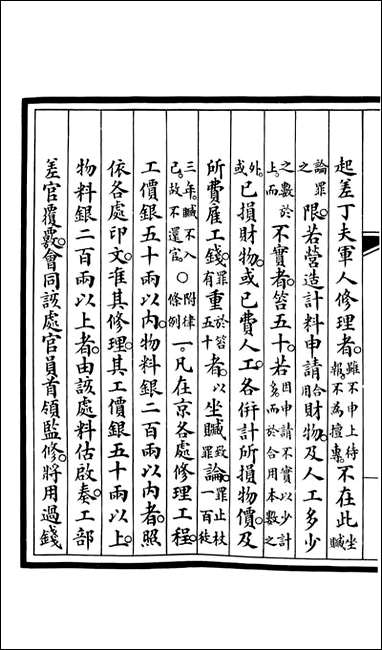 起差丁夫軍人修理者雖不申上待報不為擅專不在此坐贓
論罪之限若營造計料申請合用財物及人工多少
之數於上而不實者笞五十若因申請不實以少計多而於合用本數之
外或已損財物或已費人工各併計所損物價及
所費雇工錢罪有重於笞五十者以坐贓致罪論罪止杖一百徒
三年贓不入己故不還官○附律條例一凡在京各處修理工程
工價銀五十兩以內物料銀二百兩以內者照
依各處印文准其修理其工價銀五十兩以上
物料銀二百兩以上者由該處料估啟奏工部
差官覆覈會同該處官員首領監修將用過錢